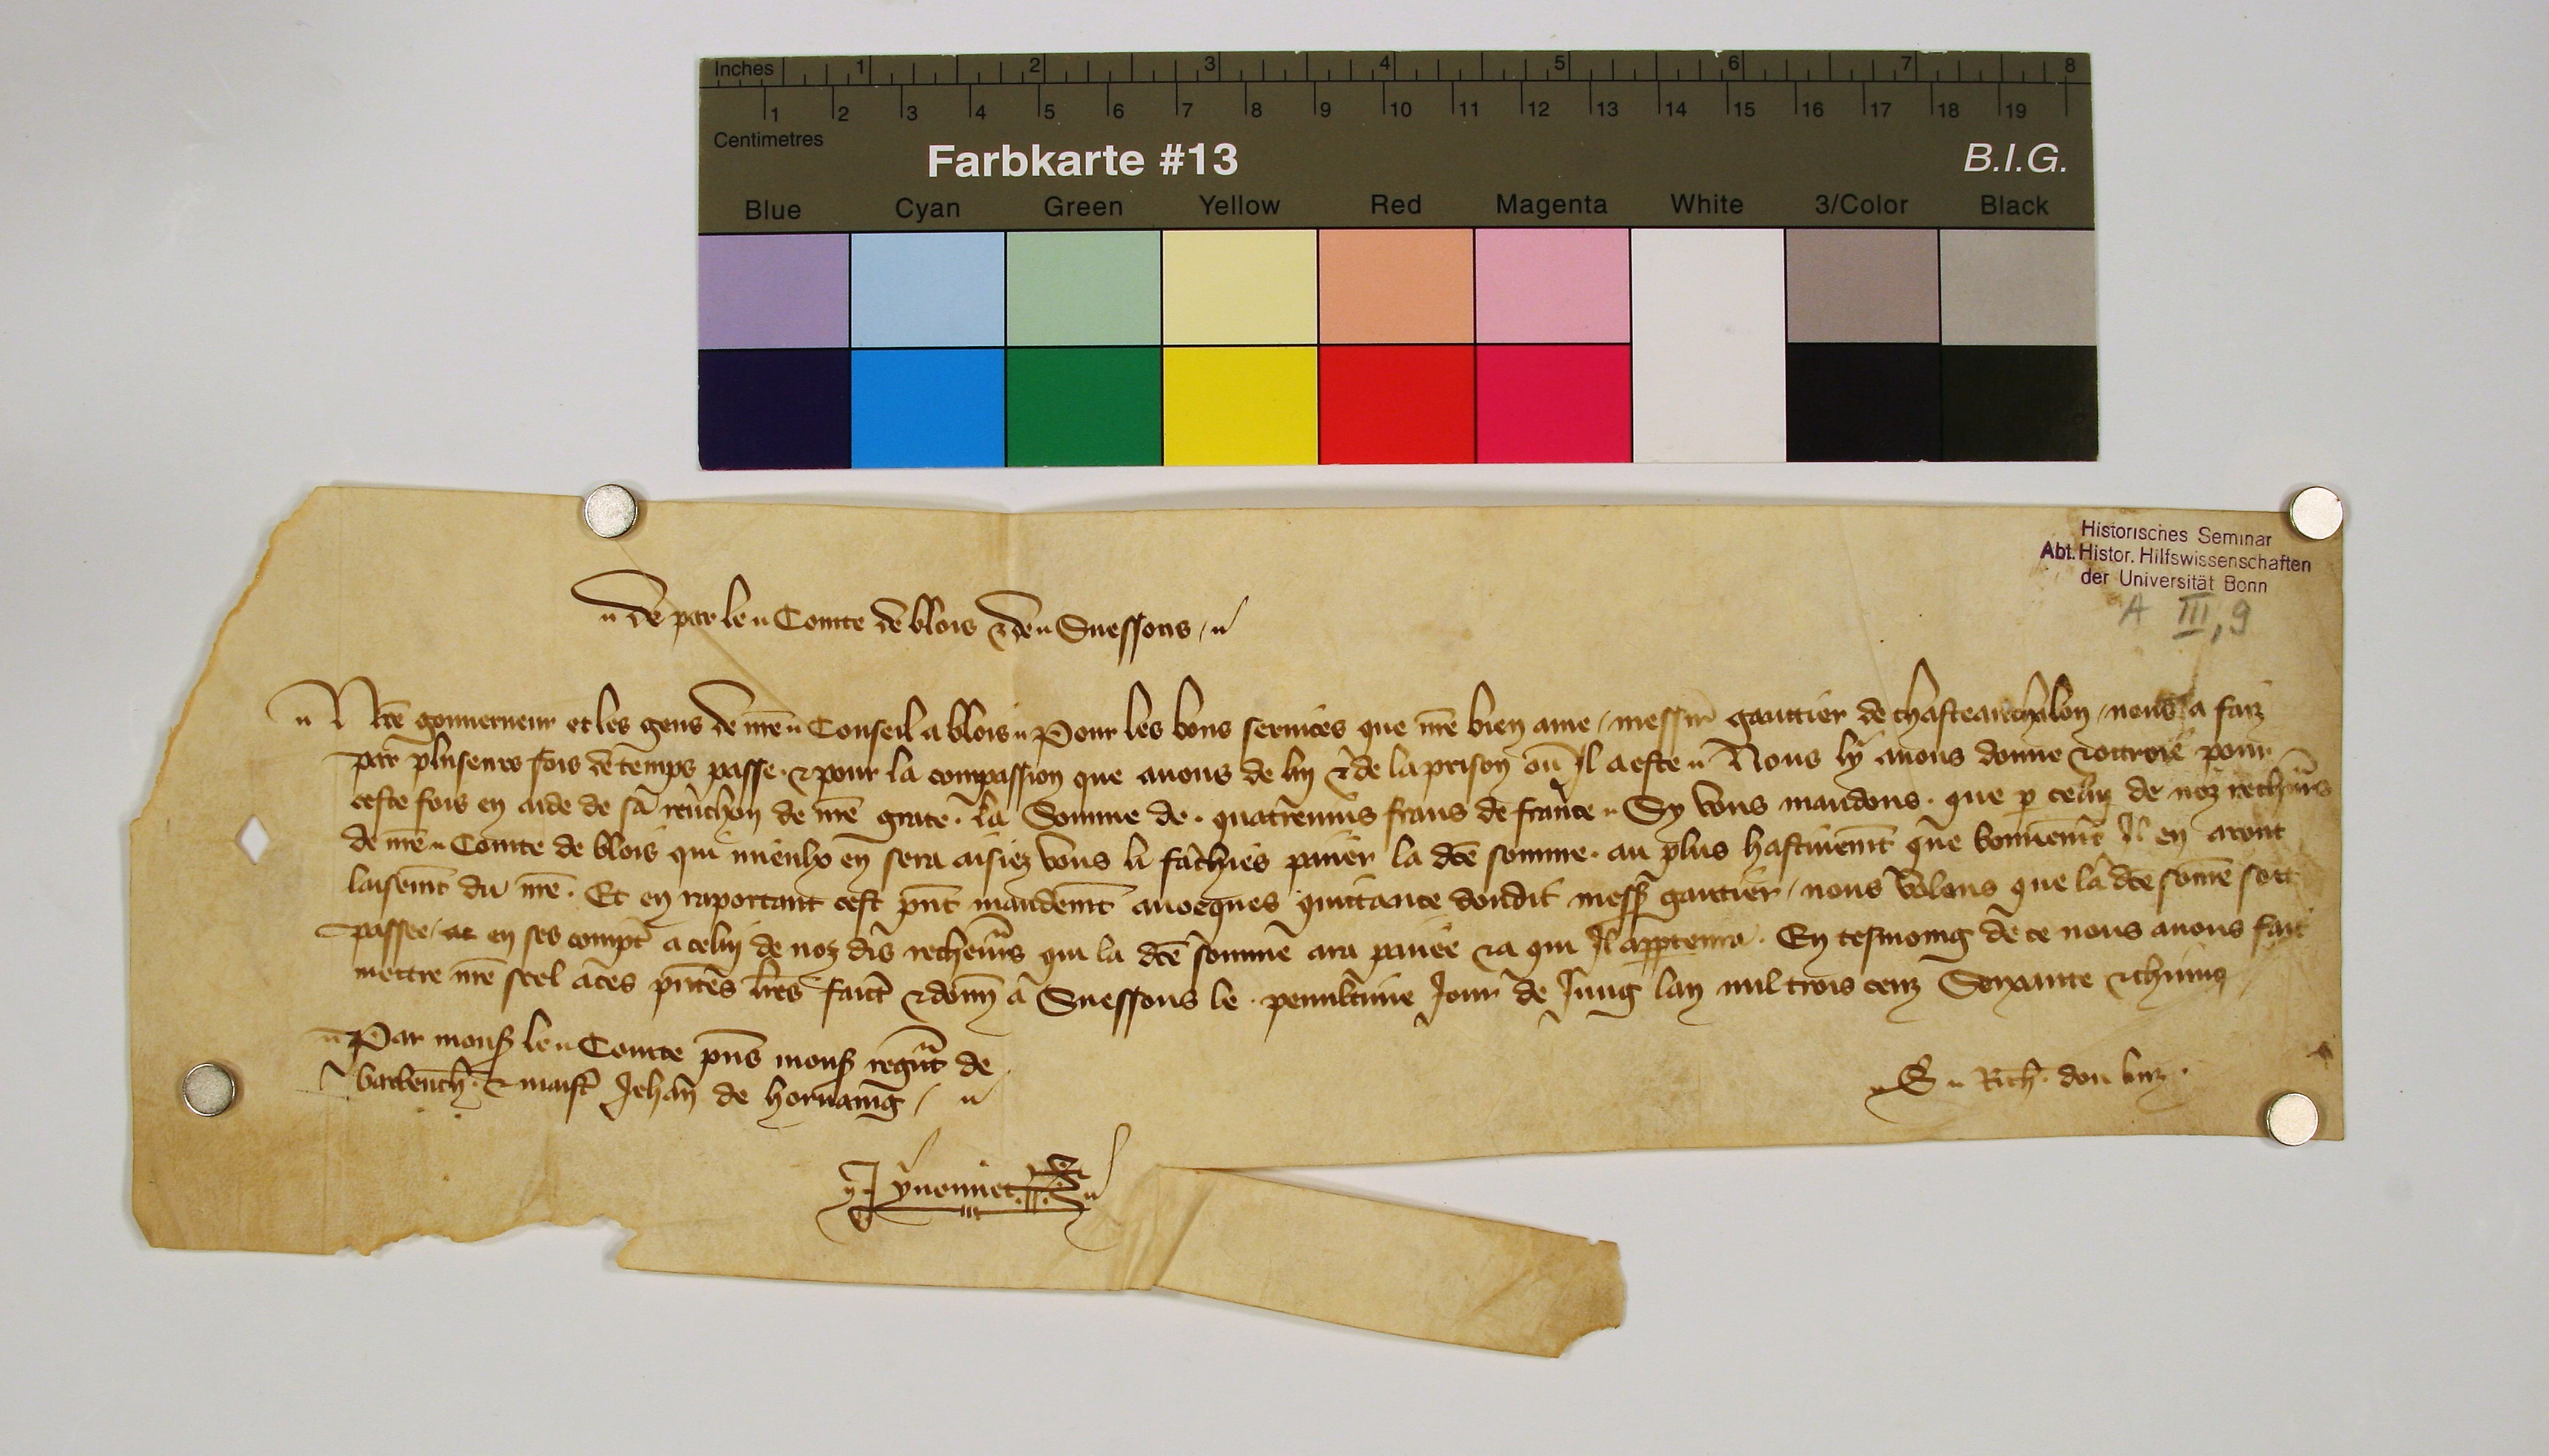 Inches 1 2 3 4 5 6 7 8
1 2 3 4 5 6 7 8 9 10 11 12 13 14 15 16 17 18 19
Centimetres
Farbkarte #13 B.I.G.
Blue Cyan Green Yellow Red Magenta White 3/Color Black
Historisches Seminar
Abt. Histor. Hilfswissenschaften
der Universität Bonn
A III, 9
De par le Comte de blois & de Suessons
Nře gouverneur et les gens de nře Conseil a blois Pour les bons services que nře bien ame messire gautier de chasteauchalon nous a faiz
par pluseurs fois de temps passe & pour la compassion que avons de luy & de la prison ou Il a este Nous ly avons donne & ottroie pour
ceste fois en aide de sa renchon de nře grace la Somme de quatrevins frans de france Sy vous mandons que p celuy de noz rechevrs
de nře Comte de blois qui mieulx en sera aisiez vous li fachies paier la dce somme au plus hastivemt que bonnemt Il en aront
laisemt du nře Et en raportant cest pnt mandemt avoeques quitance doudit mess gautier nous volons que la dce some soit
passee en ses compt a celuy de noz dis rechevrs qui la dce somme ara paiee & a qui Il appartenra En tesmoing de ce nous avons fait
mettre nře seel a ces pntes lres fait & donn a Suessons le penultime Jour de Juing lan mil trois cenz Soixante & chuinq
Par mons le Comte pns mons regnt de
barbench & maist Jehan de hornaing
Rich